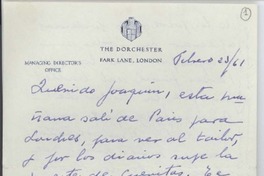 1
THE DORCHESTER
PARK LANE, LONDON
MANAGING DIRECTOR'S
OFFICE
Febrero 23/61
Querido Joaquín, esta ma
ñana salí de París para
Londres, para ver al tailor,
y por los diarios supe la